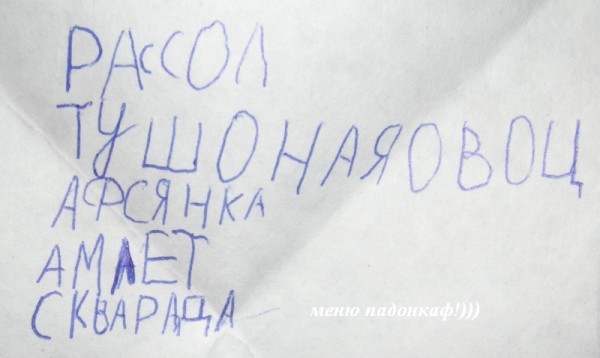 РАССОЛ
ТУШОНАЯОВОЦ
АФСЯНКА
АМЛЕТ
СКВАРАЦА
меню падонкаф!)))